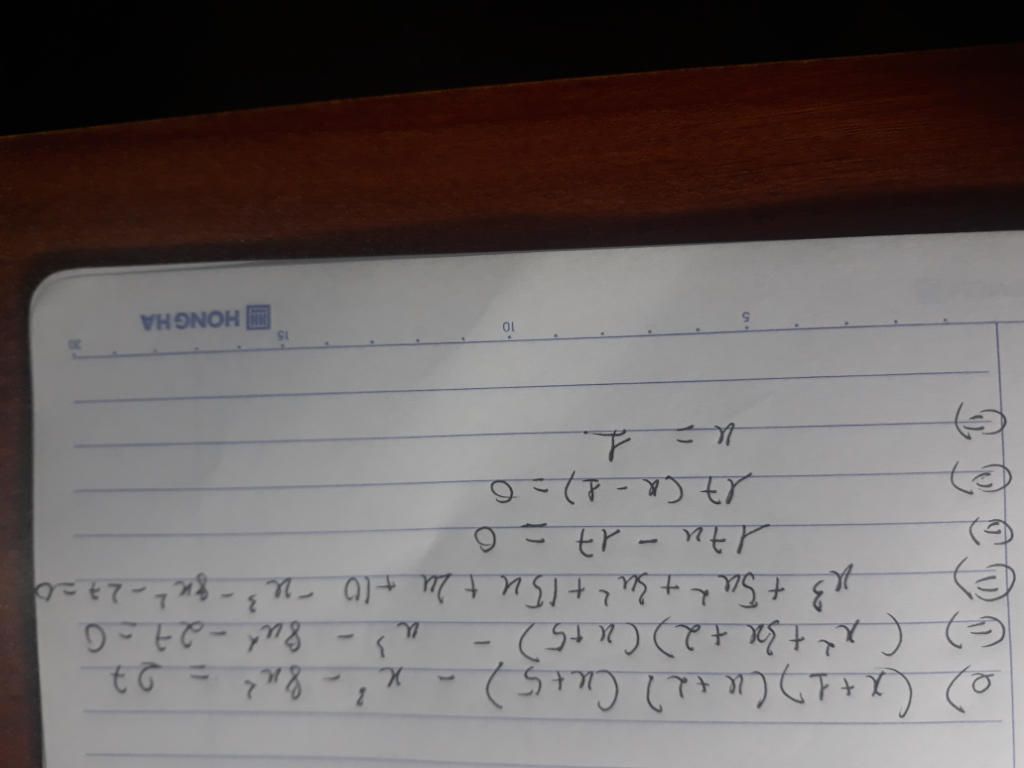 e) (x+1)(x+2)(x+5) - x³ - 8x² = 27
(=) (x²+3x+2)(x+5) - x³ - 8x² - 27 = 0
(=) x³ + 5x² + 3x² + 15x + 2x + 10 - x³ - 8x² - 27 = 0
(=) 17x - 17 = 0
(=) 17(x - 1) = 0
(=) x = 1.
5 10 15 20
HONG HA